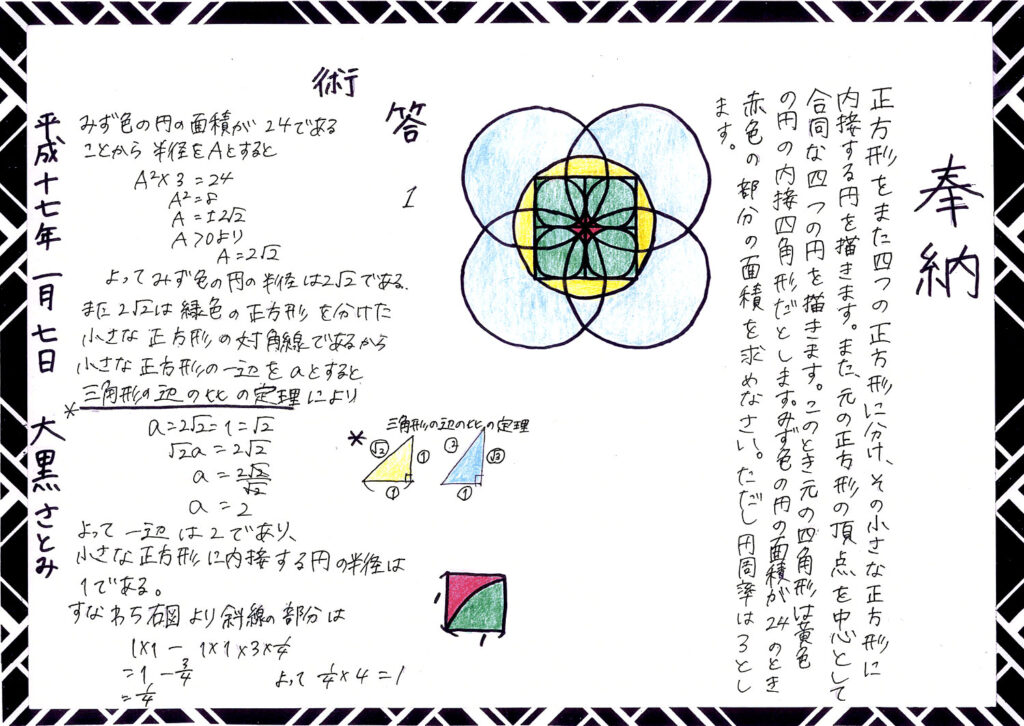 奉納
正方形をまた四つの正方形に分け、その小さな正方形に
内接する円を描きます。また、元の正方形の頂点を中心として
合同な四つの円を描きます。このとき元の四角形は黄色
の円の内接四角形だとします。みず色の円の面積が24のとき
赤色の部分の面積を求めなさい。ただし円周率は3とし
ます。
答 1
術
みず色の円の面積が24である
ことから半径をAとすると
A²×3=24
A²=8
A=±2√2
A>0より
A=2√2
よってみず色の円の半径は2√2である。
また2√2は緑色の正方形を分けた
小さな正方形の対角線であるから
小さな正方形の一辺をaとすると
*三角形の辺の比の定理により
a=2√2=1=√2
√2a=2√2
a=2√2/√2
a=2
よって一辺は2であり、
小さな正方形に内接する円の半径は
1である。
すなわち右図より斜線の部分は
1×1-1×1×3×1/4
=1-3/4
=1/4
よって1/4×4=1
*三角形の辺の比の定理
√2 1 1
2 √3 1
1
1
平成十七年 一月七日 大黒さとみ